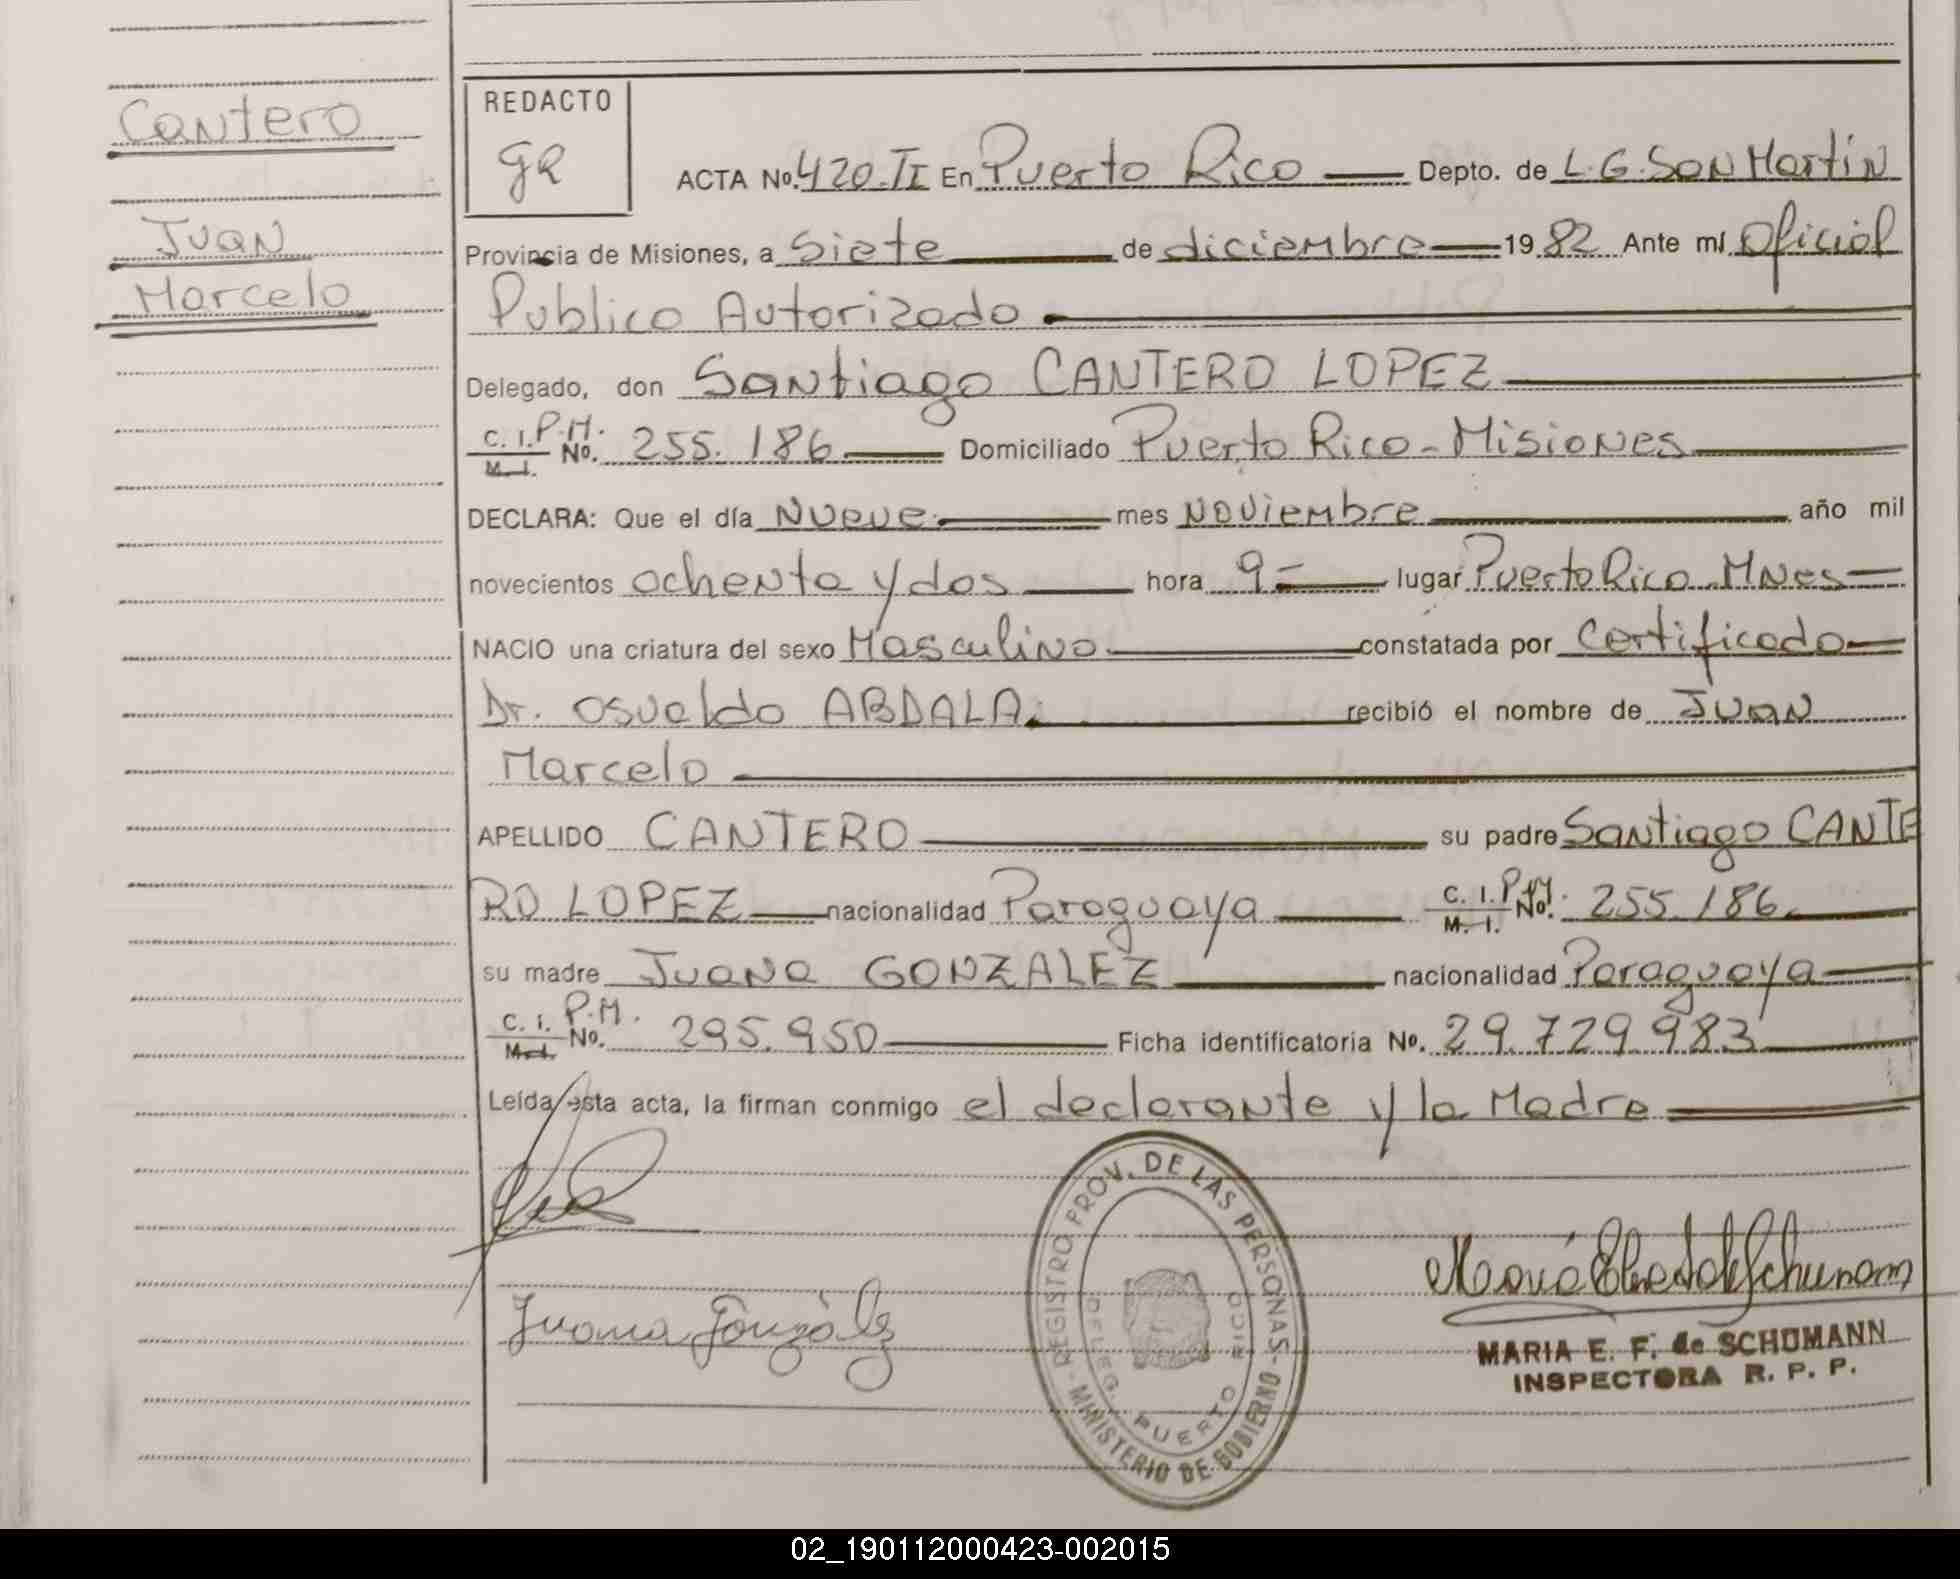 Cantero
Juan
Marcelo
REDACTO
gR
ACTA No. 420.TI En Puerto Rico Depto. de L.G. San Martin
Provincia de Misiones, a Siete de diciembre 19 82 Ante mí Oficial
Publico Autorizado
Delegado, don Santiago CANTERO LOPEZ
C. I. P.M.
M. I. No. 255.186 Domiciliado Puerto Rico - Misiones
DECLARA: Que el día Nueve mes Noviembre año mil
novecientos ochenta y dos hora 9- lugar Puerto Rico Mnes
NACIO una criatura del sexo Masculino constatada por Certificado
Dr. Osvaldo ABDALA. recibió el nombre de Juan
Marcelo
APELLIDO CANTERO su padre Santiago CANTE
RO LOPEZ nacionalidad Paraguaya C. I. P.M. M. I. No. 255.186
su madre Juana GONZALEZ nacionalidad Paraguaya
C. I. P.M.
M. I. No. 295.950 Ficha identificatoria No. 29.729.983
Leída esta acta, la firman conmigo el declarante y la Madre
REGISTRO PROV. DE LAS PERSONAS - MINISTERIO DE GOBIERNO -
DELEG. PUERTO RICO
Juana González
MARIA E. F. de SCHUMANN
INSPECTORA R. P. P.
02_190112000423-002015